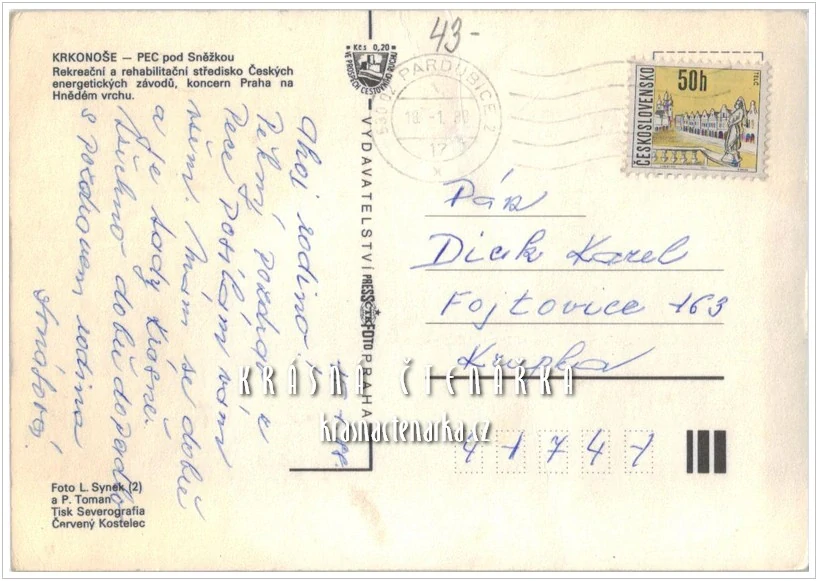 43-
KRKONOŠE — PEC pod Sněžkou
Rekreační a rehabilitační středisko Českých
energetických závodů, koncern Praha na
Hnědém vrchu.
Kčs 0,20
VE PROSPĚCH CESTOVNÍHO RUCHU
530 02 PARDUBICE 2
18. -1.
17
ČESKOSLOVENSKO
50h
TELČ
Ahoj rodino!
Pěkný pozdrav z
Pece posílám vám
všem. Mám se dobře
a je tady krásně.
Všechno dobře dopadlo
s pozdravem rodina
VYDAVATELSTVÍ PRESSFOTO PRAHA
ČTK
Pán
Karel
Fojtovice 163
Krupka
41741
KRÁSNÁ ČTENÁŘKA
krasnactenarka.cz
Foto L. Synek (2)
a P. Toman
Tisk Severografia
Červený Kostelec